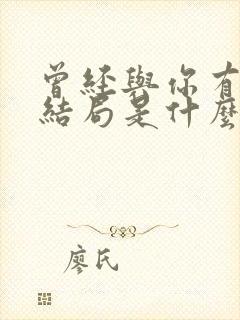 曾經與你有
結局是什麼
廖氏